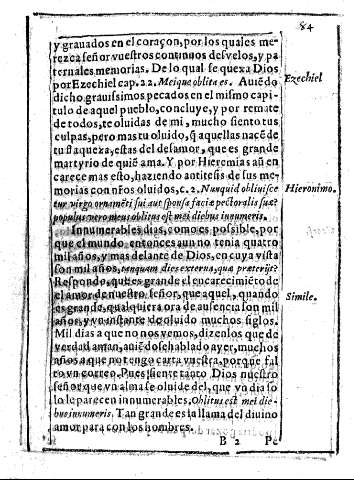 84
y grauados en el coraçon, por los quales me-
rezca señor vuestros continuos desvelos, y pa
ternales memorias. De lo qual se quexa Dios
por Ezechiel cap. 22. Meique oblita es. Auiēdo
Ezechiel
dicho grauissimos pecados en el mismo capi
tulo de aquel pueblo, concluye, y por remate
de todos, te oluidas de mi, mucho siento tus
culpas, pero mas tu oluido, q̃ aquellas nacē de
tu flaqueza, estas del desamor, que es grande
martyrio de quiē ama. Y por Hieremias añ en
carece mas esto, haziendo antitesis de sus me-
morias con nr̃os oluidos, c. 2. Nunquid obliuisce
Hieronimo.
tur virgo ornamēti sui aut sponsa faciæ pectoralis suæ?
populus vero meus oblitus est mei diebus innumeris.
Innumerables dias, como es possible, por
que el mundo entonces aun no tenia quatro
mil años, y mas delante de Dios, en cuya vista
son mil años, tanquam dies externa, quæ præterijt?
Respondo, quiē es grande el encarecimiēto de
el amor de nuestro señor, que aquel, quando
es grande, qualquiera ora de ausencia son mil
Simile.
años, y vn instante de oluido muchos siglos.
Mil dias a que no nos vemos, dizen los que de
verdad aman, auiēdose hablado ayer, muchos
años a que no tengo carta vuestra, porque fal
to vn correo. Pues siente tanto Dios nuestro
señor que vn alma se oluide del, que vn dia so
lo le parecen innumerables, Oblitus est mei die-
bus innumeris. Tan grande es la llama del diuino
amor para con los hombres.
B 2 Pe